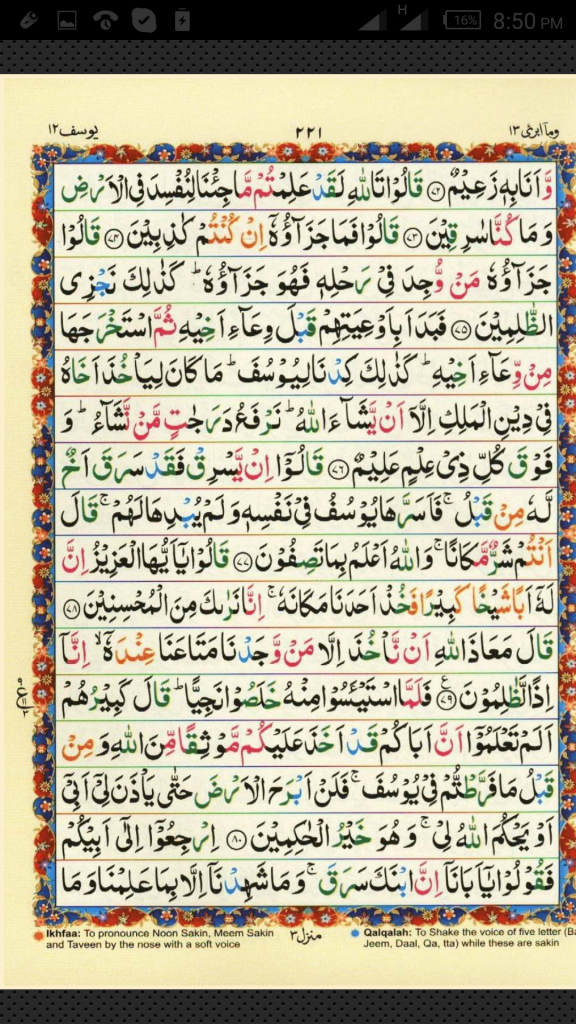 H 16% 8:50 PM
يوسف ١٢ ٢٢١ وما ابرئ ١٣
وَّاَنَا بِهٖ زَعِيْمٌ ﴿۷۲﴾ قَالُوْا تَاللّٰهِ لَقَدْ عَلِمْتُمْ مَّا جِئْنَا لِنُفْسِدَ فِى الْاَرْضِ
وَمَا كُنَّا سٰرِقِيْنَ ﴿۷۳﴾ قَالُوْا فَمَا جَزَآؤُهٗۤ اِنْ كُنْتُمْ كٰذِبِيْنَ ﴿۷۴﴾ قَالُوْا
جَزَآؤُهٗ مَنْ وُّجِدَ فِىْ رَحْلِهٖ فَهُوَ جَزَآؤُهٗ ؕ كَذٰلِكَ نَجْزِى
الظّٰلِمِيْنَ ﴿۷۵﴾ فَبَدَاَ بِاَوْعِيَتِهِمْ قَبْلَ وِعَآءِ اَخِيْهِ ثُمَّ اسْتَخْرَجَهَا
مِنْ وِّعَآءِ اَخِيْهِ ؕ كَذٰلِكَ كِدْنَا لِيُوْسُفَ ؕ مَا كَانَ لِيَاْخُذَ اَخَاهُ
فِىْ دِيْنِ الْمَلِكِ اِلَّاۤ اَنْ يَّشَآءَ اللّٰهُ ؕ نَرْفَعُ دَرَجٰتٍ مَّنْ نَّشَآءُ ؕ وَ
فَوْقَ كُلِّ ذِىْ عِلْمٍ عَلِيْمٌ ﴿۷۶﴾ قَالُوْۤا اِنْ يَّسْرِقْ فَقَدْ سَرَقَ اَخٌ
لَّهٗ مِنْ قَبْلُ ۚ فَاَسَرَّهَا يُوْسُفُ فِىْ نَفْسِهٖ وَلَمْ يُبْدِهَا لَهُمْ ۚ قَالَ
اَنْتُمْ شَرٌّ مَّكَانًا ۚ وَاللّٰهُ اَعْلَمُ بِمَا تَصِفُوْنَ ﴿۷۷﴾ قَالُوْا يٰۤاَيُّهَا الْعَزِيْزُ اِنَّ
لَهٗۤ اَبًا شَيْخًا كَبِيْرًا فَخُذْ اَحَدَنَا مَكَانَهٗ ۚ اِنَّا نَرٰىكَ مِنَ الْمُحْسِنِيْنَ ﴿۷۸﴾
قَالَ مَعَاذَ اللّٰهِ اَنْ نَّاْخُذَ اِلَّا مَنْ وَّجَدْنَا مَتَاعَنَا عِنْدَهٗۤ ۙ اِنَّاۤ
اِذًا لَّظٰلِمُوْنَ ﴿۷۹﴾ ع فَلَمَّا اسْتَيْـَٔسُوْا مِنْهُ خَلَصُوْا نَجِيًّا ؕ قَالَ كَبِيْرُهُمْ
اَلَمْ تَعْلَمُوْۤا اَنَّ اَبَاكُمْ قَدْ اَخَذَ عَلَيْكُمْ مَّوْثِقًا مِّنَ اللّٰهِ وَمِنْ
قَبْلُ مَا فَرَّطْتُّمْ فِىْ يُوْسُفَ ۚ فَلَنْ اَبْرَحَ الْاَرْضَ حَتّٰى يَاْذَنَ لِىْۤ اَبِىْۤ
اَوْ يَحْكُمَ اللّٰهُ لِىْ ۚ وَهُوَ خَيْرُ الْحٰكِمِيْنَ ﴿۸۰﴾ اِرْجِعُوْۤا اِلٰٓى اَبِيْكُمْ
فَقُوْلُوْا يٰۤاَبَانَاۤ اِنَّ ابْنَكَ سَرَقَ ۚ وَمَا شَهِدْنَاۤ اِلَّا بِمَا عَلِمْنَا وَمَا
منزل ٣
Ikhfaa: To pronounce Noon Sakin, Meem Sakin
and Taveen by the nose with a soft voice
Qalqalah: To Shake the voice of five letter (Ba
Jeem, Daal, Qa, tta) while these are sakin